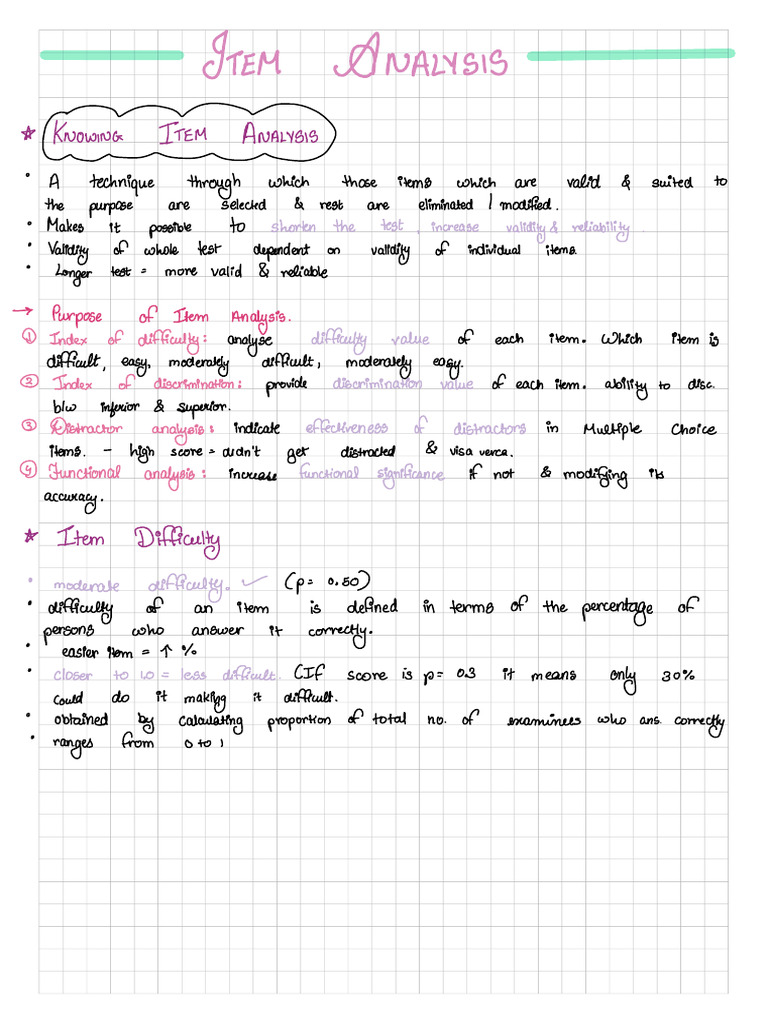 ITEM ANALYSIS
* KNOWING ITEM ANALYSIS
• A technique through which those items which are valid & suited to
the purpose are selected & rest are eliminated / modified.
• Makes it possible to shorten the test, increase validity & reliability.
• Validity of whole test dependent on validity of individual items.
• Longer test = more valid & reliable
→ Purpose of Item Analysis.
① Index of difficulty: analyse difficulty value of each item. Which item is
difficult, easy, moderately difficult, moderately easy.
② Index of discrimination: provide discrimination value of each item. ability to disc.
b/w inferior & superior.
③ Distractor analysis: indicate effectiveness of distractors in Multiple Choice
items. - high score = didn't get distracted & visa verca.
④ Functional analysis: increase functional significance if not & modifying its
accuracy.
* Item Difficulty
• moderate difficulty. ✓ (p= 0.50)
• difficulty of an item is defined in terms of the percentage of
persons who answer it correctly.
• easier item = ↑ %
• closer to 1.0 = less difficult. (If score is p= 0.3 it means only 30%
could do it making it difficult.
• obtained by calculating proportion of total no. of examinees who ans. correctly
• ranges from 0 to 1